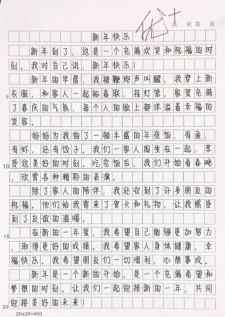 优+
新年快乐
新年到了，这是一个充满欢笑和祝福的时
刻，我对自己说，新年快乐！
新年的早晨，我被鞭炮声叫醒，我穿上新
衣服，和家人一起贴春联，挂灯笼，家里充满
了喜庆的气氛，每个人的脸上都洋溢着幸福的
笑容。
妈妈为我做了一顿丰盛的年夜饭，有鱼，
有虾，还有饺子，我们一家人围坐在一起，享
受这美好的时刻，吃完饭后，我们开始看春晚，
欣赏各种精彩的表演。
除了家人的陪伴，我还收到了许多朋友的
祝福，他们给我寄来了贺卡和礼物，让我感受
到了友谊的温暖。
在新的一年里，我希望自己能够更加努力
，取得更好的成绩，我希望家人身体健康，幸
福快乐，我希望朋友们一切顺利，心想事成。
新年是一个新的开始，是一个充满希望和
梦想的时刻，让我们一起迎接新的一年，共同
迎接美好的未来！
5
10
15
20
20×20=400